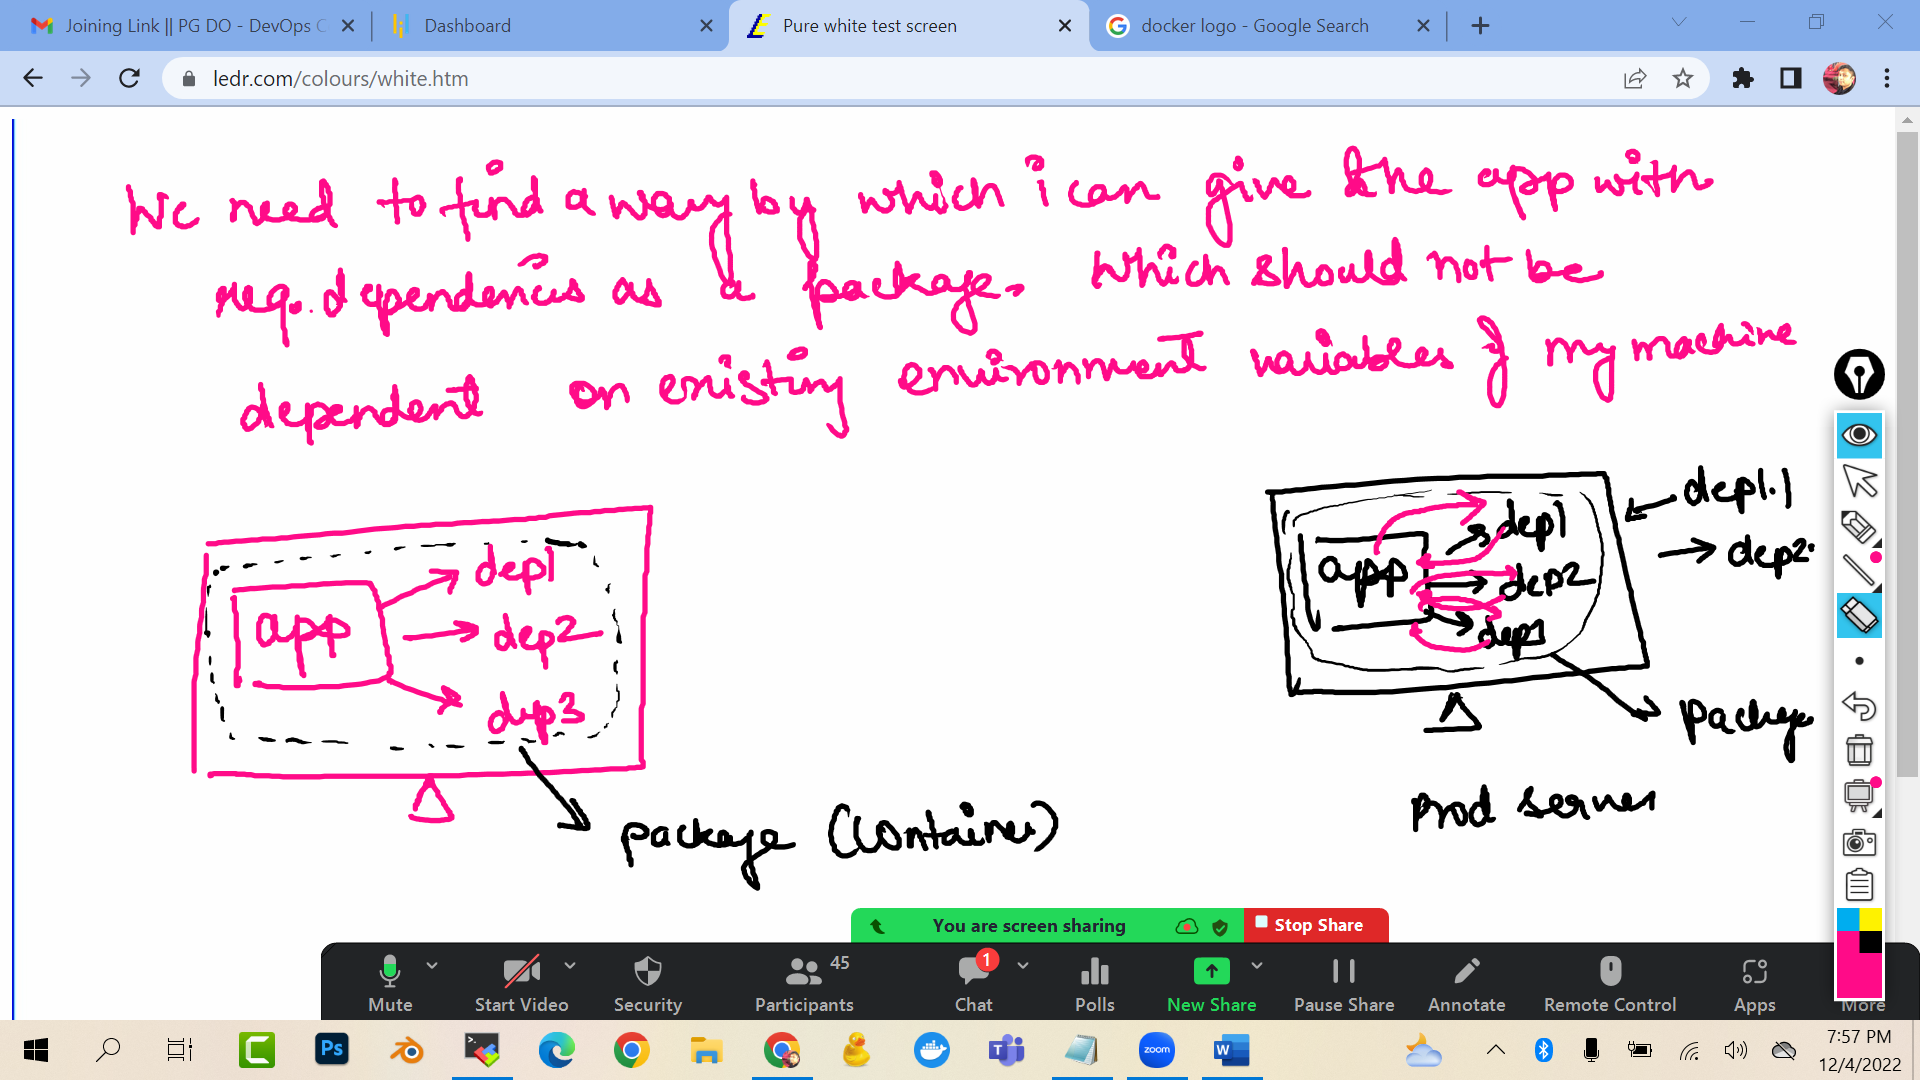 Joining Link || PG DO - DevOps C
Dashboard
Pure white test screen
docker logo - Google Search
ledr.com/colours/white.htm
We need to find a way by which i can give the app with
req. dependencies as a package. Which should not be
dependent on existing environment variables of my machine
app
dep1
dep2
dep3
package (Container)
app
dep1
dep2
dep1
dep1.1
dep2.
package
Prod server
You are screen sharing
Stop Share
Mute
Start Video
Security
45
Participants
1
Chat
Polls
New Share
Pause Share
Annotate
Remote Control
Apps
More
Ps
zoom
W
7:57 PM
12/4/2022